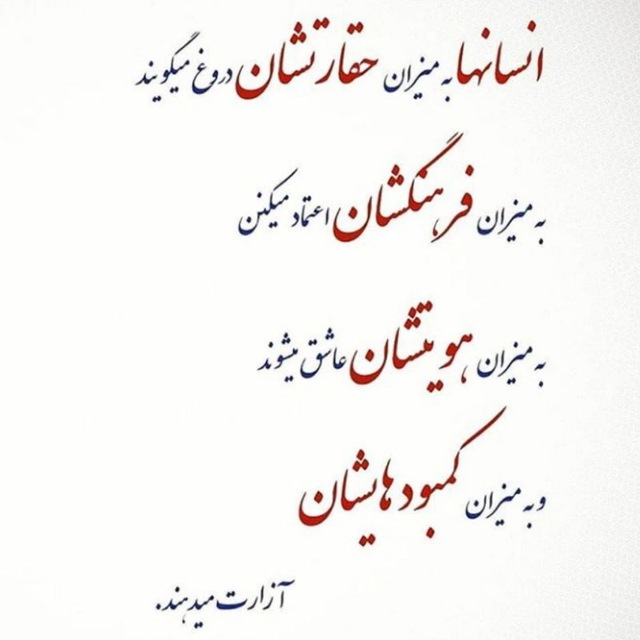 انسانها به میزان حقارتشان دروغ میگویند
به میزان فرهنگشان اعتماد میکنن
به میزان هویتشان عاشق میشوند
و به میزان کمبودهایشان
آزارت میدهند.